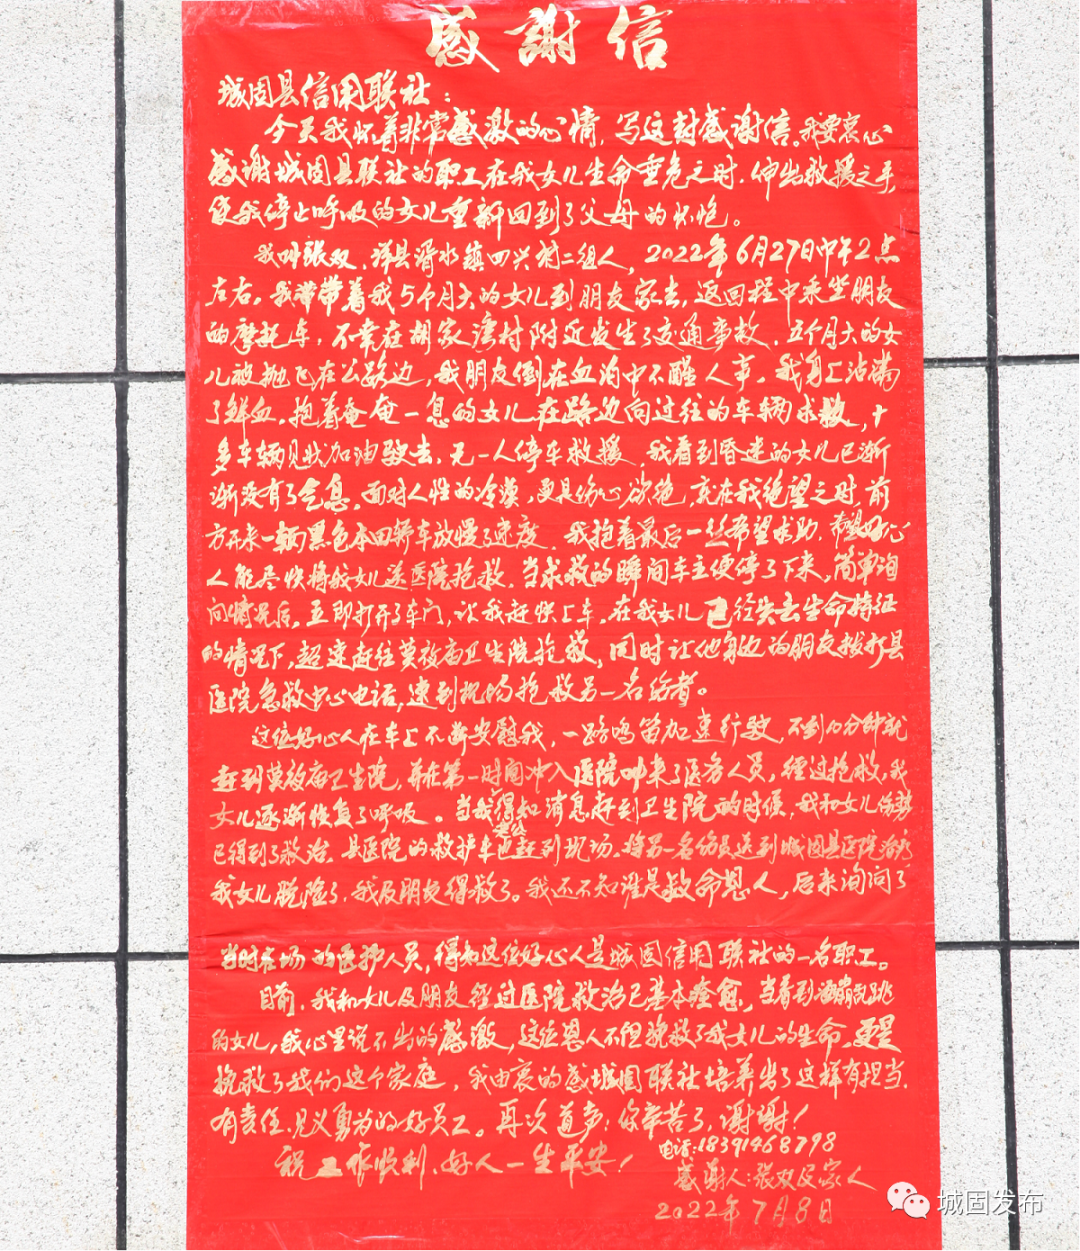 感謝信
城固县信用联社：
今天我怀着非常感激的心情，写这封感谢信。我要衷心
感谢城固县联社的职工在我女儿生命垂危之时.伸出救援之手
使我停止呼吸的女儿重新回到了父母的怀抱。
我叫張双.洋县湑水镇四兴村二组人，2022年6月27日中午2点
左右。我带带着我5个月大的女儿到朋友家去，返回程中乘坐朋友
的摩托车，不幸在胡家湾村附近发生了交通事故.五个月大的女
儿被抛飞在公路边，我朋友倒在血泊中不醒人事。我身上沾满
了鲜血.抱着奄奄一息的女儿在路边向过往的车辆求救，十
多车辆见状加油驶去，无一人停车救援，我看到昏迷的女儿已渐
渐没有了气息。面对人性的冷漠，更是伤心欲绝，就在我绝望之时.前
方开来一辆黑色本田轿车放慢了速度.我抱着最后一丝希望求助.希望好心
人能尽快将我女儿送医院抢救.当求救的瞬间车主便停了下来，简单询
问情况后.立即打开了车门，让我赶快上车，在我女儿已经失去生命特征
的情况下，超速赶往莫爷庙卫生院抢救，同时让他身边的朋友拨打县
医院急救中心电话，速到现场抢救另一名伤者。
这位好心人在车上不断安慰我，一路鸣笛加速行驶，不到10分钟就
赶到莫爷庙卫生院，并在第一时间冲入医院叫来了医务人员，经过抢救，我
女儿逐渐恢复了呼吸。当我老公得知消息赶到卫生院的时候，我和女儿伤势
已得到了救治.县医院的救护车也赶到现场.将另一名伤员送到城固县医院治疗
我女儿脱险了.我及朋友得救了。我还不知谁是救命恩人，后来询问了
当时在场的医护人员，得知这位好心人是城固信用联社的一名职工。
目前.我和女儿及朋友经过医院救治已基本痊愈，当看到活蹦乱跳
的女儿，我心里说不出的感激，这位恩人不但挽救了我女儿的生命，更是
挽救了我们这个家庭，我由衷的感城固联社培养出了这样有担当.
有责任.见义勇为的好员工。再次道声：你辛苦了，谢谢！
祝工作顺利，好人一生平安！
电话:18391468798
感谢人:張双及家人
2022年7月8日
城固发布